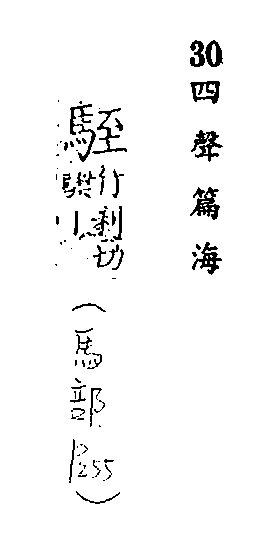 30四聲篇海
駤
行 切
（馬部P255）